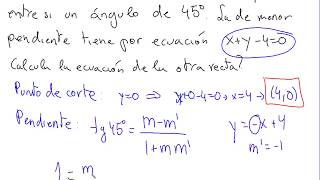 entre si un ángulo de 45º. La de menor
pendiente tiene por ecuación x+y-4=0
Calcula la ecuación de la otra recta?
Punto de corte: y=0 ⇒ x+0-4=0, x=4 → (4,0)
Pendiente: tg45º = m-m' / 1+mm' y=-x+4
m'=-1
1 = m